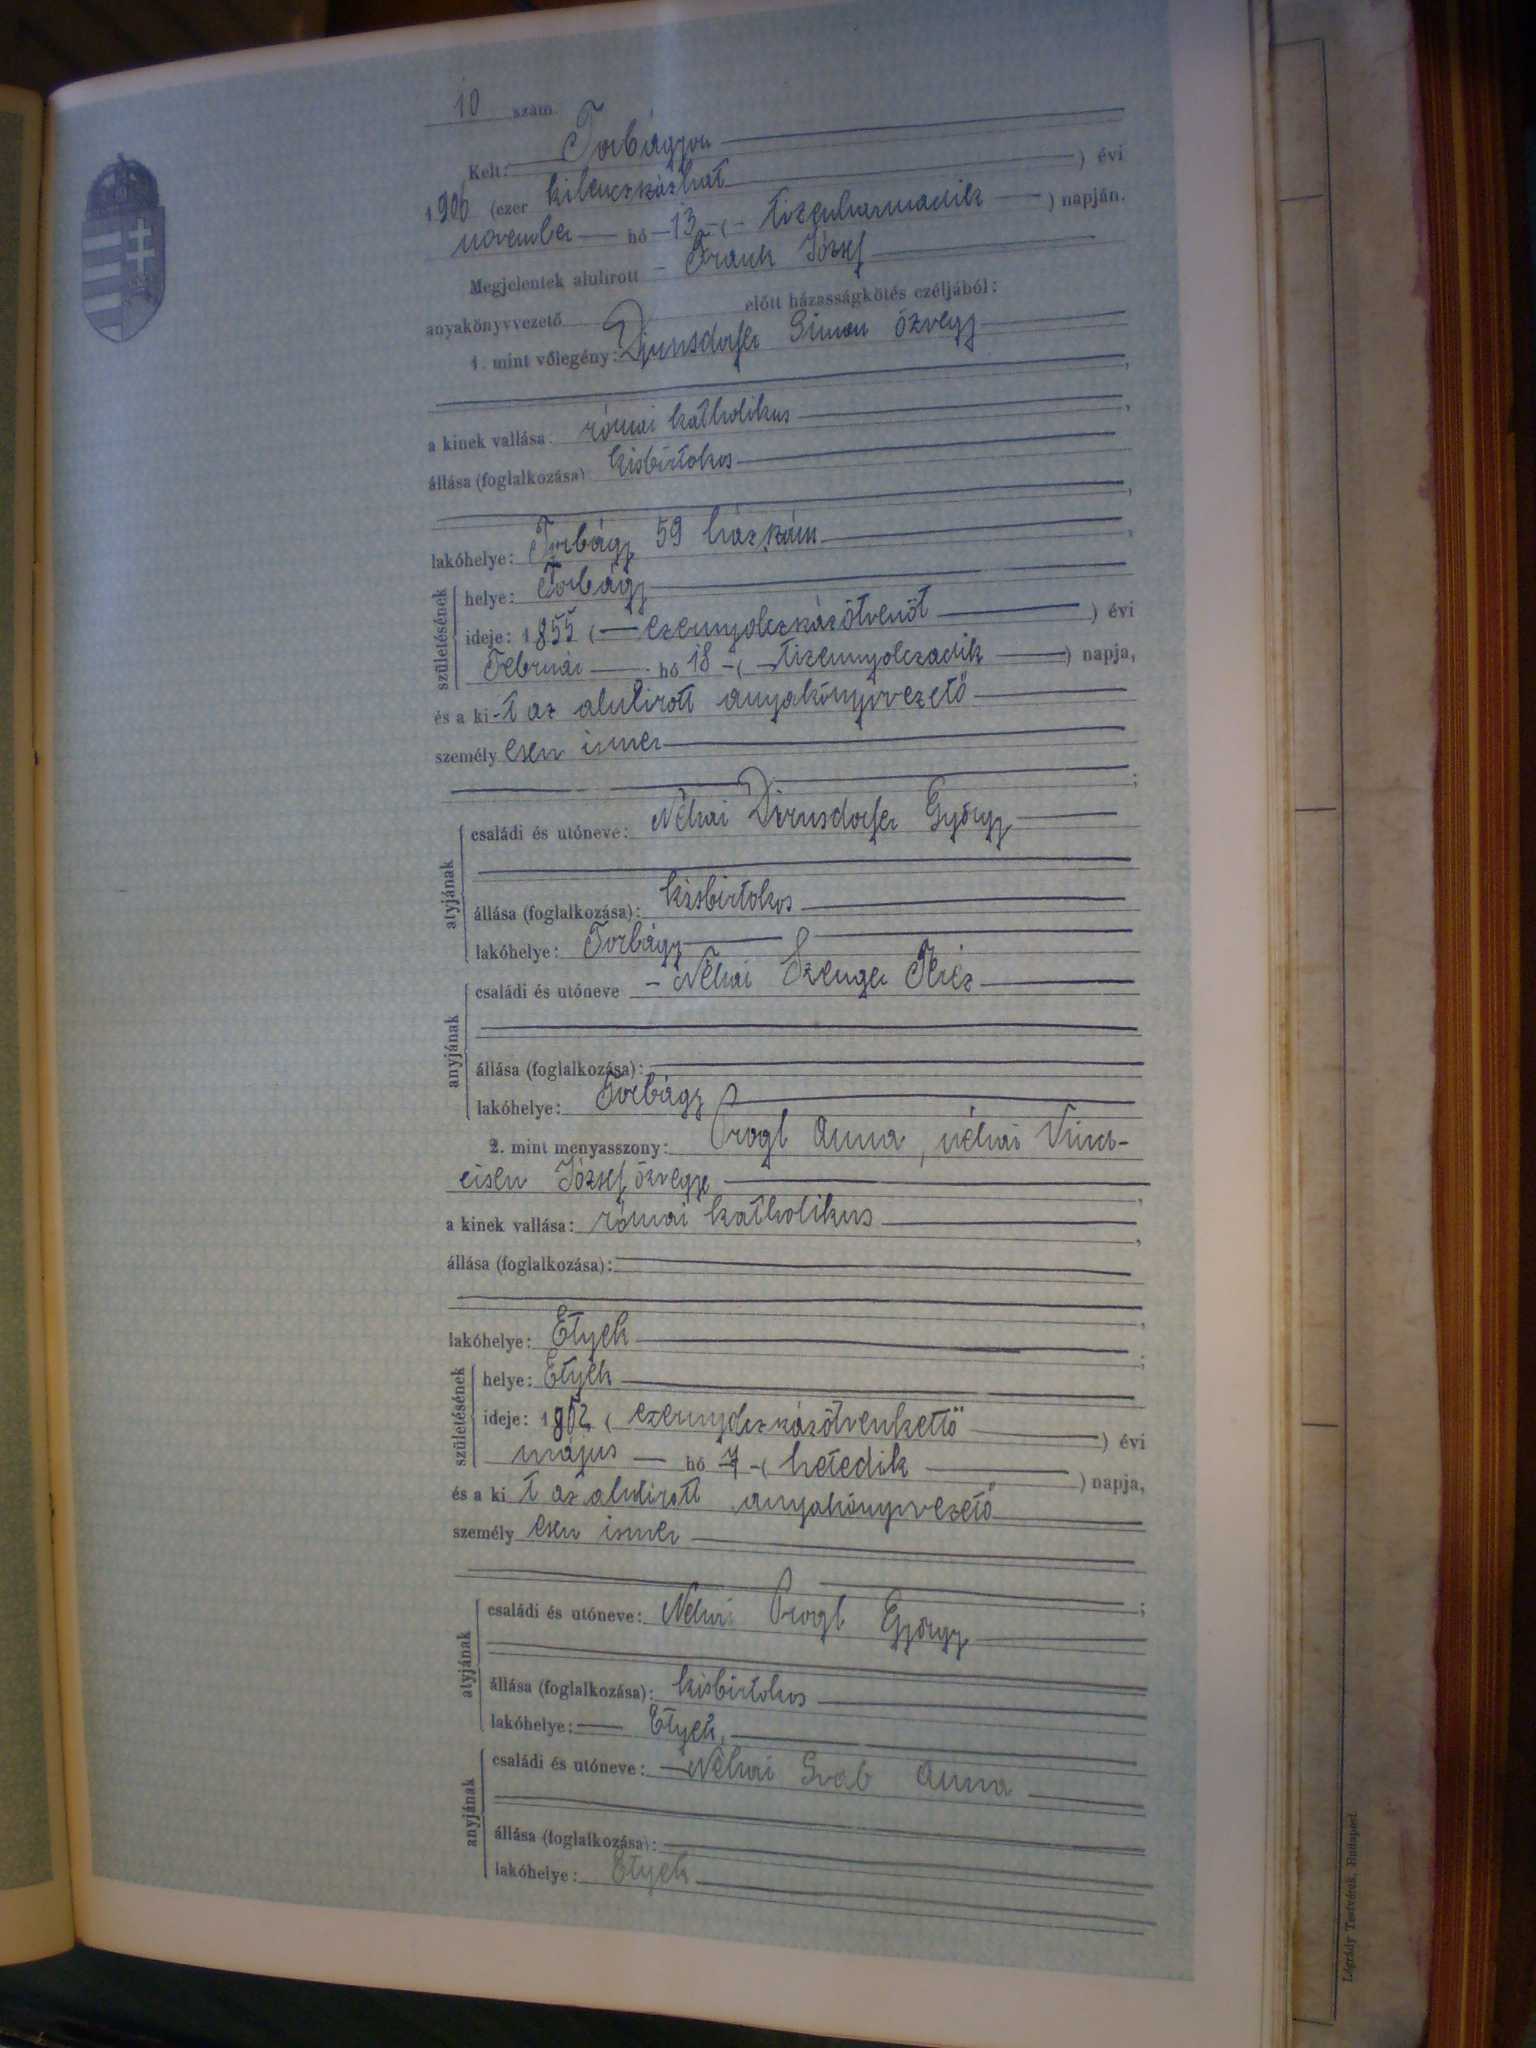 10 szám.
Kelt: Torbágyon
1906 (ezer kilenczszázhat ) évi
november hó 13 ( tizenharmadik ) napján.
Megjelentek alulirott Frank József
anyakönyvvezető előtt házasságkötés czéljából:
1. mint vőlegény: Simon özvegy
a kinek vallása: római katholikus ,
állása (foglalkozása) kisbirtokos
,
lakóhelye: Torbágy 59 házszám ,
születésének
helye: Torbágy
ideje: 1855 ( ezernyolczszázötvenöt ) évi
Február hó 18 ( tizennyolczadik ) napja,
és a ki-t az alulirott anyakönyvvezető
személy esen ismer
;
atyjának
családi és utóneve: Néhai György
állása (foglalkozása): kisbirtokos
lakóhelye: Torbágy
anyjának
családi és utóneve Néhai Teréz
állása (foglalkozása):
lakóhelye: Torbágy
2. mint menyasszony: Progl Anna, néhai Vind-
eisen József özvegye ,
a kinek vallása: római katholikus ,
állása (foglalkozása):
,
lakóhelye: Etyek ;
születésének
helye: Etyek
ideje: 1852 ( ezernyolczszázötvenkettő ) évi
május hó 7 ( hetedik ) napja,
és a ki t az alulirott anyakönyvvezető
személy esen ismer
;
atyjának
családi és utóneve: Néhai Progl György
állása (foglalkozása): kisbirtokos
lakóhelye: Etyek,
anyjának
családi és utóneve: Néhai Svab Anna
állása (foglalkozása):
lakóhelye: Etyek
Légrády Testvérek, Budapest.